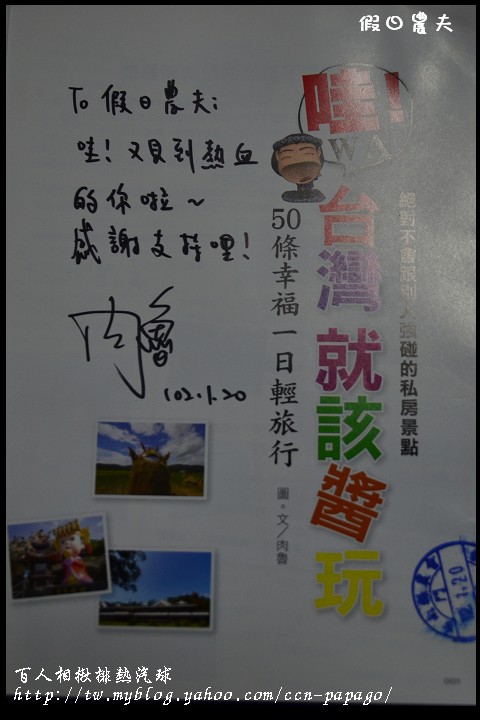 假日農夫
To 假日農夫:
哇! 又見到熱血
的你啦~
感謝支持哩!
肉魯
102.1.20
哇!
WA
台灣就該醬玩
50條幸福一日輕旅行
絕對不會跟別人強碰的私房景點
圖。文/肉魯
1.20
0001
百人相揪排熱汽球
http://tw.myblog.yahoo.com/ccn-papago/